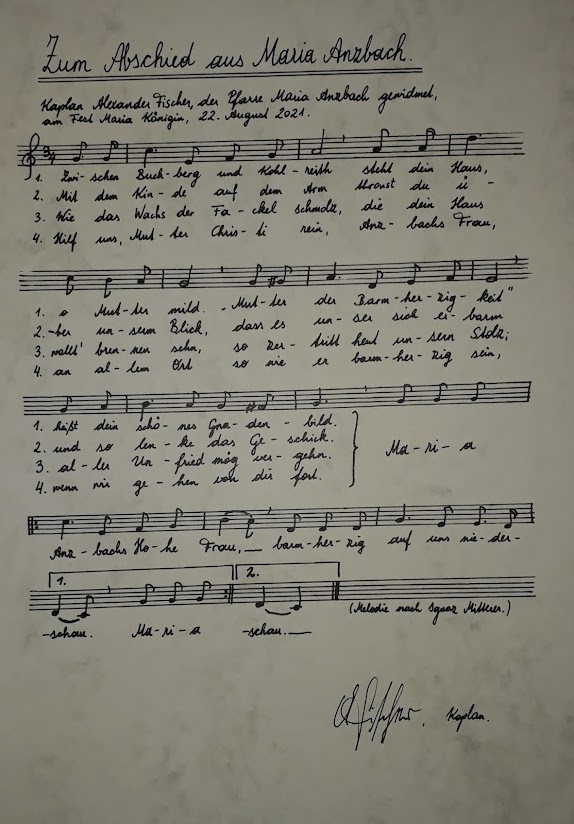 Zum Abschied aus Maria Anzbach.
Kaplan Alexander Fischer, der Pfarre Maria Anzbach gewidmet,
am Fest Maria Königin, 22. August 2021.
3/4
1. Zwi-schen Buch-berg und Kohl-reith steht dein Haus,
2. Mit dem Kin-de auf dem Arm thronst du ü-
3. Wie das Wachs der Fa-ckel schmolz, die dein Haus
4. Hilf uns, Mut-ter Chris-ti rein, Anz-bachs Frau,
1. o Mut-ter mild. „Mut-ter der Barm-her-zig-keit"
2. -ber un-serm Blick, dass es un-ser sich er-barm
3. wollt' bren-nen sehn, so zer-tritt heut un-sern Stolz;
4. an al-lem Ort so wie er barm-her-zig sein,
1. heißt dein schö-nes Gna-den-bild.
2. und so len-ke das Ge-schick.
3. al-ler Un-fried mög ver-gehn.
4. wenn wir ge-hen von dir fort.
Ma-ri-a
Anz-bachs Ho-he Frau,__ barm-her-zig auf uns nie-der-
1. 2.
-schau. Ma-ri-a -schau.__ (Melodie nach Ignaz Mitterer.)
Kaplan.